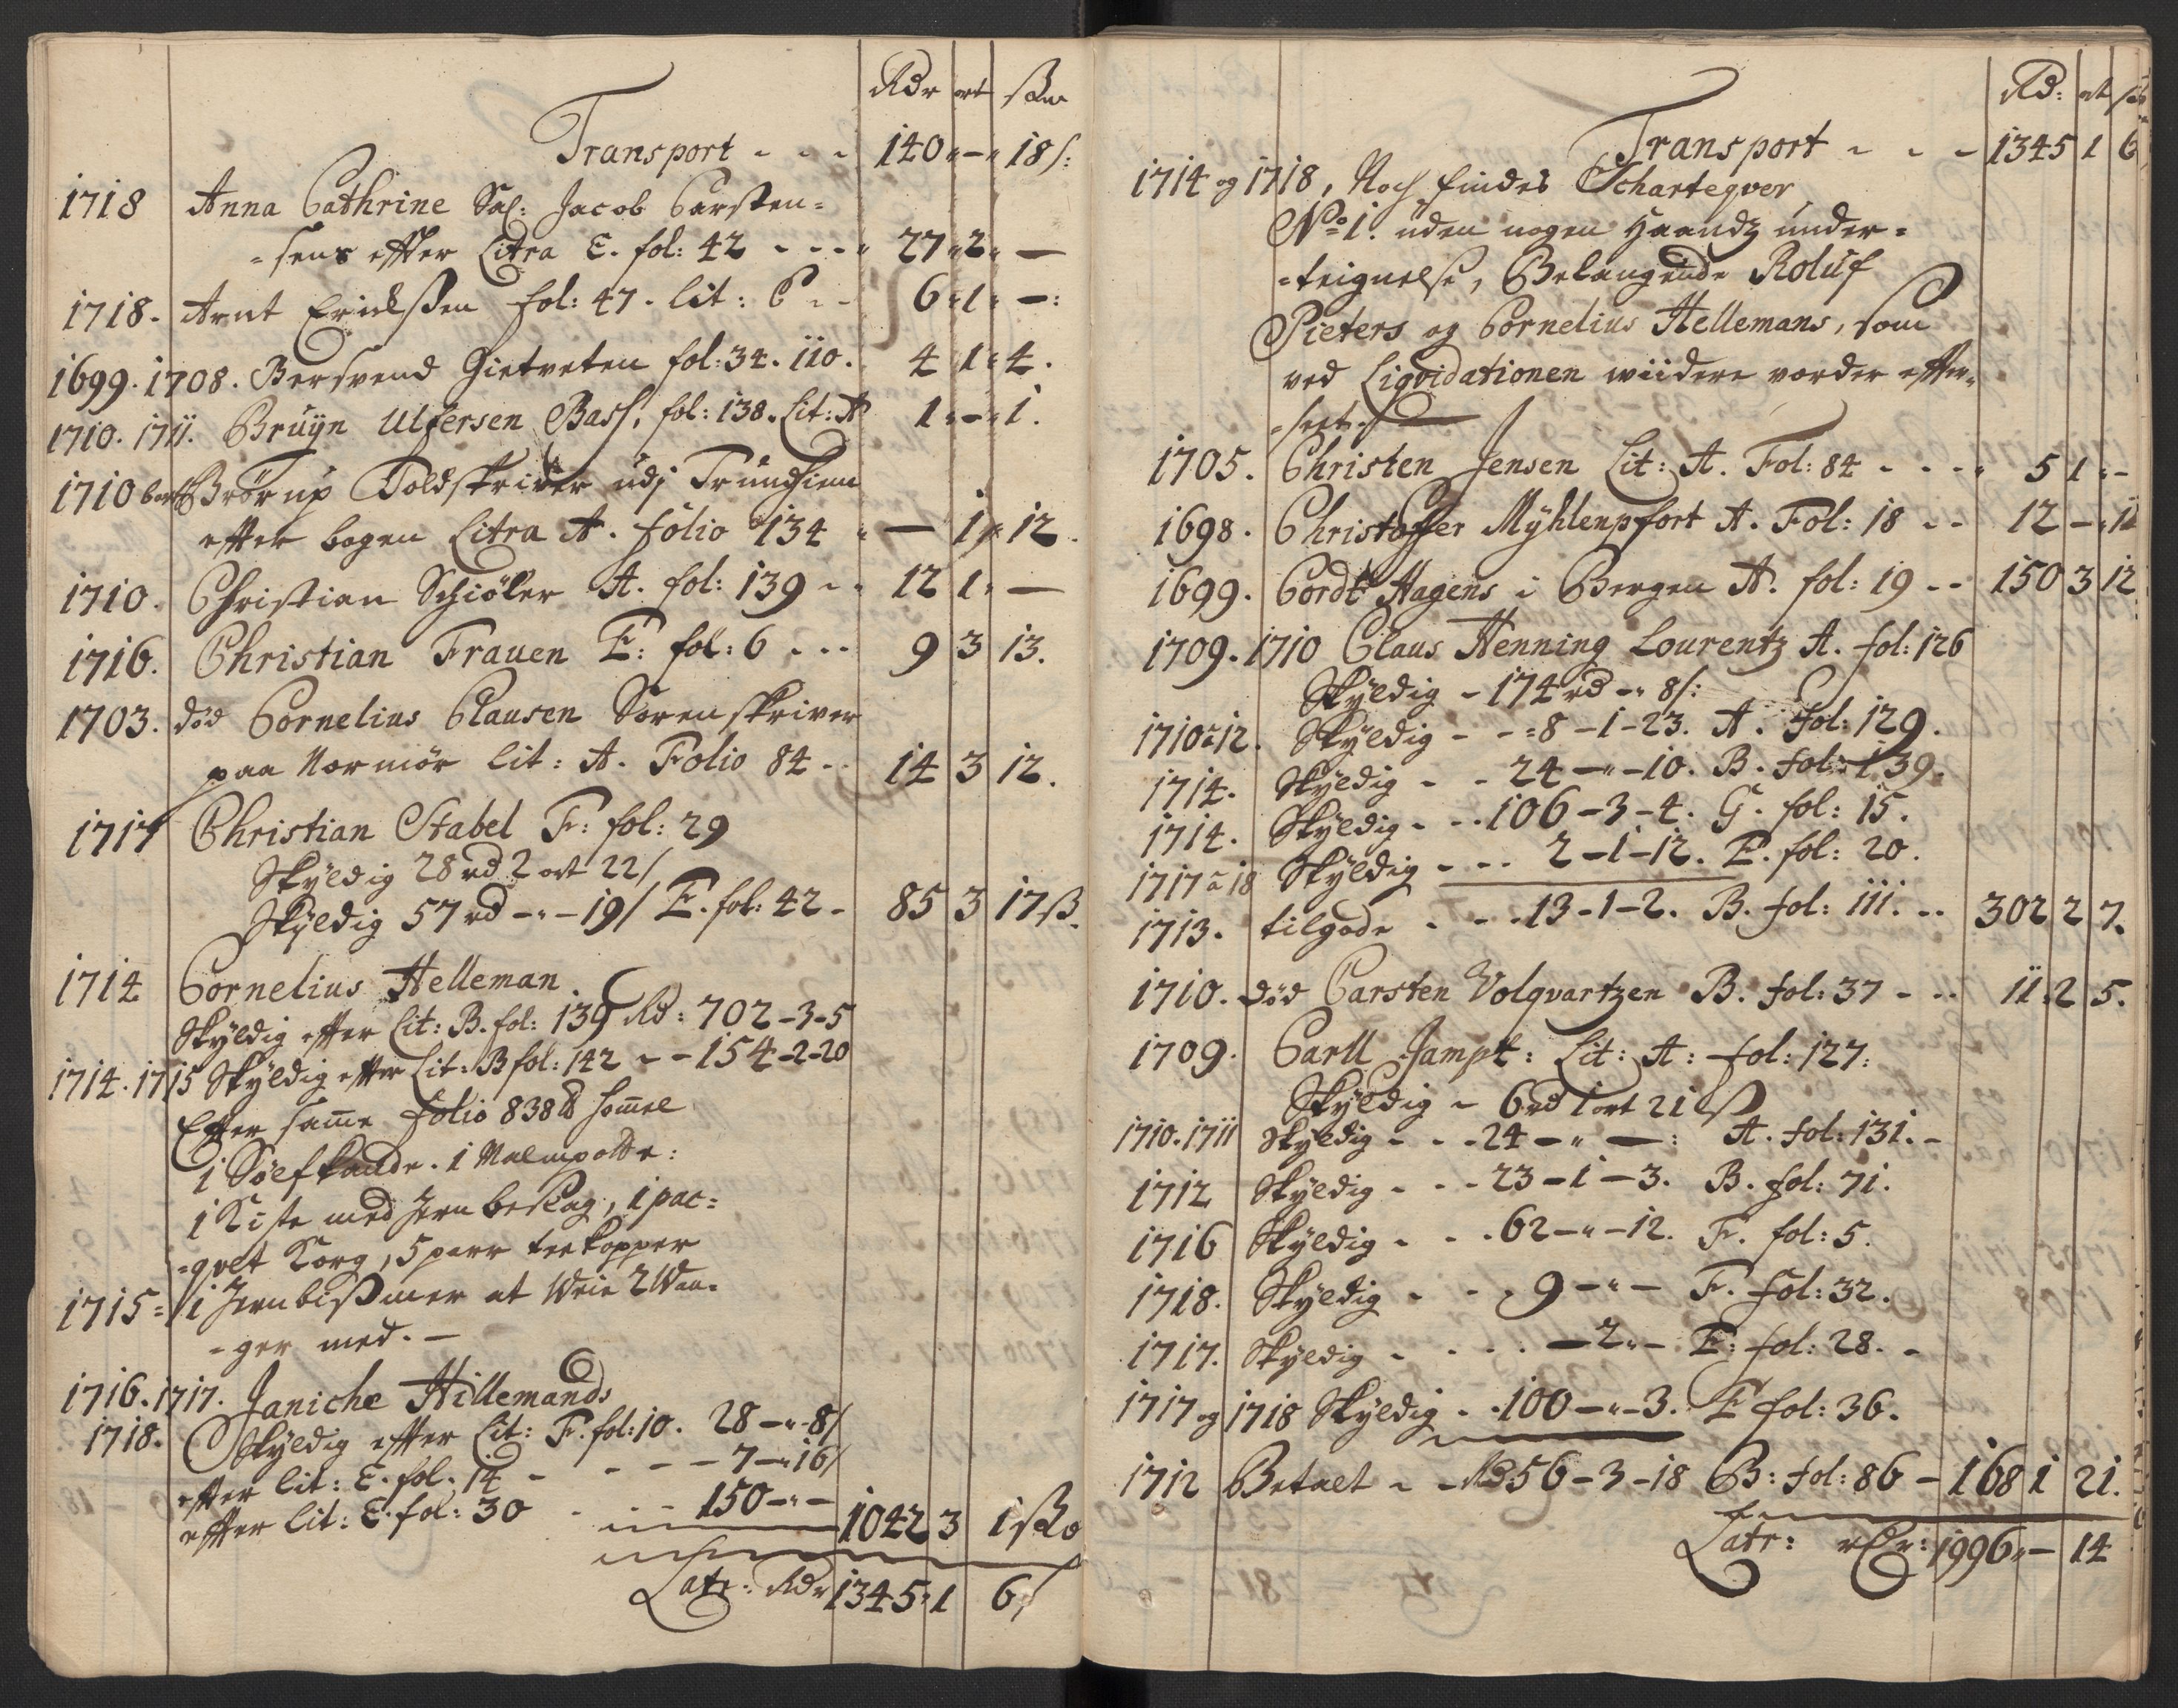 Rdr ort skr
Transport - - - 140 - 18 s:
1718 Anna Cathrine Sal: Jacob Carsten=
=sens effter Litra E. fol: 42 - - - 27 2 —
1718. Arnt Erichssen fol: 47. lit: E - - 6 1 —:
1699. 1708. Bersvend Gietveten fol: 34. 110. 4 1 4.
1710. 1711. Bruyn Ulfersen Bass, fol: 138. Lit: A 1 - 1.
1710 Brörup Toldskriver udj Trundhiem
effter bogen Litra A. folio 134 — 1 12.
1710. Christian Schiöler A. fol: 139 - - 12 1 —
1716. Christian Frauen E: fol: 6 - - - 9 3 13.
1703. död Cornelius Clausen Sorenskriver
paa Normör lit: A. Folio 84 - - 14 3 12.
1717 Christian Stabel F: fol: 29
Skyldig 28 rd 2 ort 22 s
Skyldig 57 rd - - 19 s E. fol: 42 - 85 3 17 s.
1714 Cornelius Helleman
Skyldig effter Lit: B. fol: 139 Rd: 702-3-5
1714. 1715 Skyldig effter Lit: B fol: 142 - - 154-2-20
Effter samme folio 838 lb hommel
1 Sölfkande. 1 Malmpotte:
1 Kiste med Jern beslag, 1 pac=
=qvet Korg, 5 parr teekopper
1715= 1 Jernbissmer at Weie 2 Waa=
=ger med. —
1716. 1717. Janiche Hillemands
1718. Skyldig effter Lit: F. fol: 10. 28 - - 8 s
effter lit: E. fol. 14 - - - - - 7 - 16 s
effter lit: E. fol: 30 - - - 150 - - - 1042 3 1 sk
Latr: Rdr 1345 1 6 s
Rd: ort sk
Transport - - - 1345 1 6
1714 og 1718, Noch findes Scharteqver
No 1. uden nogen Haandz under=
=teignelse, Belangende Roluf
Pieters og Cornelius Hellemans, som
ved Liqvidationen wiidere vorder effter=
=seet.
1705. Christen Jensen Lit: A. Fol: 84 - - - 5 1 -
1698. Christoffer Mÿhlenpfort A. Fol: 18 - - 12 -
1699. Cordt Hagens i Bergen A. fol: 19 - - 150 3 12
1709. 1710 Claus Henning Lourentz A. fol: 126
Skyldig - 174 rd - 8 s:
1710 à 12. Skyldig - - 8-1-23. A. fol: 129.
1714. Skyldig - - 24 - - 10. B. fol: 139.
1714. Skyldig - - 106-3-4. G. fol: 15.
1717 à 18 Skyldig - - - 2-1-12. E. fol: 20.
1713. tilgode - - - 13-1-2. B. fol: 111. - - 302 2 7.
1710. död Carsten Volqvartzen B. fol: 37 - - - 11 2 5.
1709. Carll Jampt: Lit: A: fol: 127:
Skyldig - 6 rd 1 ort 21 s
1710. 1711 Skyldig - - - 24 - - —: A. fol: 131. -
1712 Skyldig - - - 23-1-3. B. fol: 71.
1716 Skyldig - - - 62 - - 12. F. fol: 5.
1718. Skyldig - - - 9 - - - F. fol: 32.
1717. Skyldig - - - - - 2 - - E: fol: 28. -
1717 og 1718 Skyldig - - 100 - - 3. E fol: 36.
1712 Betalt - - Rd: 56-3-18 B: fol: 86 - 168 1 21.
Latr: rdr: 1996 - 14